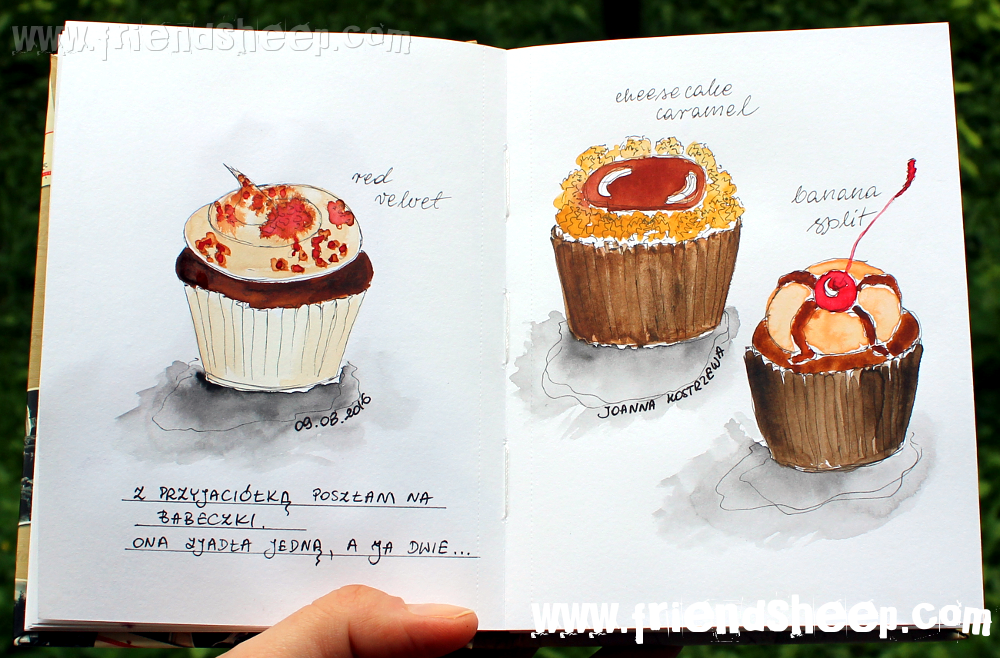 www.friendsheep.com
red
velvet
09.08.2016
Z PRZYJACIÓŁKĄ POSZŁAM NA
BABECZKI.
ONA ZJADŁA JEDNĄ, A JA DWIE...
cheesecake
caramel
banana
split
JOANNA KOSTRZEWA
www.friendsheep.com